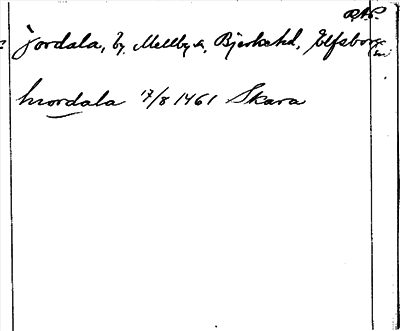 R.A.P.
Jordala, by, Mellby s, Bjerke hd, Elfsborg
hiordala 17/8 1461 Skara